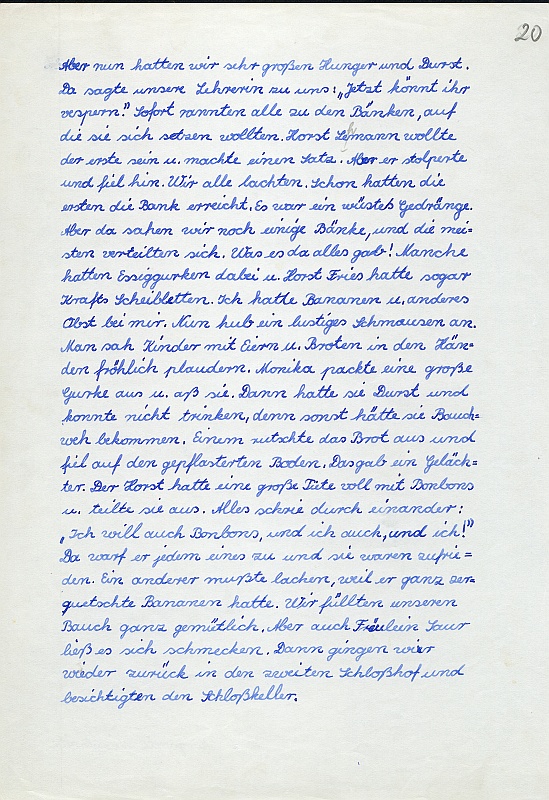 20
Aber nun hatten wir sehr großen Hunger und Durst.
Da sagte unsere Lehrerin zu uns: „Jetzt könnt ihr
vespern." Sofort rannten alle zu den Bänken, auf
die sie sich setzen wollten. Horst Lehmann wollte
der erste sein u. machte einen Satz. Aber er stolperte
und fiel hin. Wir alle lachten. Schon hatten die
ersten die Bank erreicht. Es war ein wüstes Gedränge.
Aber da sahen wir noch einige Bänke, und die mei=
sten verteilten sich. Was es da alles gab! Manche
hatten Essiggurken dabei u. Horst Fries hatte sogar
Krafts Scheibletten. Ich hatte Bananen u. anderes
Obst bei mir. Nun hub ein lustiges Schmausen an.
Man sah Kinder mit Eiern u. Broten in den Hän=
den fröhlich plaudern. Monika packte eine große
Gurke aus u. aß sie. Dann hatte sie Durst und
konnte nicht trinken, denn sonst hätte sie Bauch=
weh bekommen. Einem rutschte das Brot aus und
fiel auf den gepflasterten Boden. Das gab ein Geläch=
ter. Der Horst hatte eine große Tüte voll mit Bonbons
u. teilte sie aus. Alles schrie durch einander:
„Ich will auch Bonbons, und ich auch, und ich!"
Da warf er jedem eines zu und sie waren zufrie=
den. Ein anderer mußte lachen, weil er ganz zer=
quetschte Bananen hatte. Wir füllten unseren
Bauch ganz gemütlich. Aber auch Fräulein Saur
ließ es sich schmecken. Dann gingen wir
wieder zurück in den zweiten Schloßhof und
besichtigten den Schloßkeller.